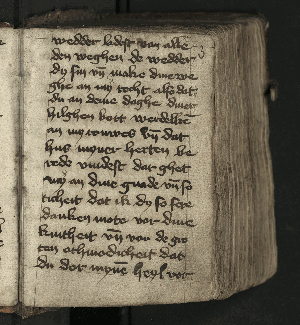 wedder ladest van alle
den weghen de wedder
dy sin vn make dine we
ghe an my recht also dat
du an deme daghe diner
hilghen bott werdelken
an my rouwes vn dat
hus myner herten be
rede vindest dat ghet
my an dine gnade vn so
ticheit dat ik dy so sere
danken mote vor dine
kintheit vn vor de gro
ten othmodicheit dat
du dor myne heyl vor